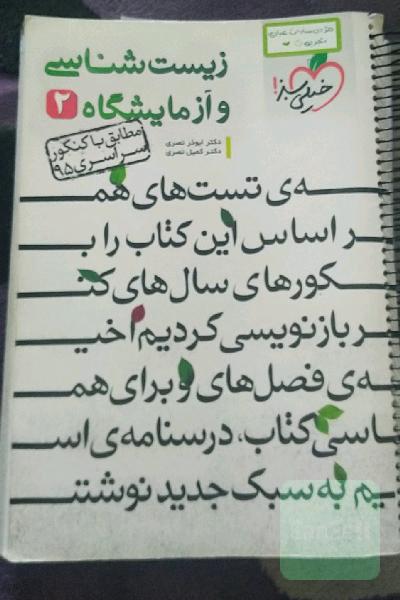 زیست‌شناسی
و آزمایشگاه ۲
دکتر ابوذر نصری
دکتر کمیل نصری
خیلی سبز!
مطابق با کنکور
سراسری ۹۵
ـه‌ی تست‌های همـ
ـر اساس این کتاب را بـ
ـکورهای سال‌های کنـ
ـر بازنویسی کردیم اخیـ
ـه‌ی فصل‌های و برای همـ
ـاسی کتاب، درسنامه‌ی اسـ
ـیم به سبک جدید نوشتـ